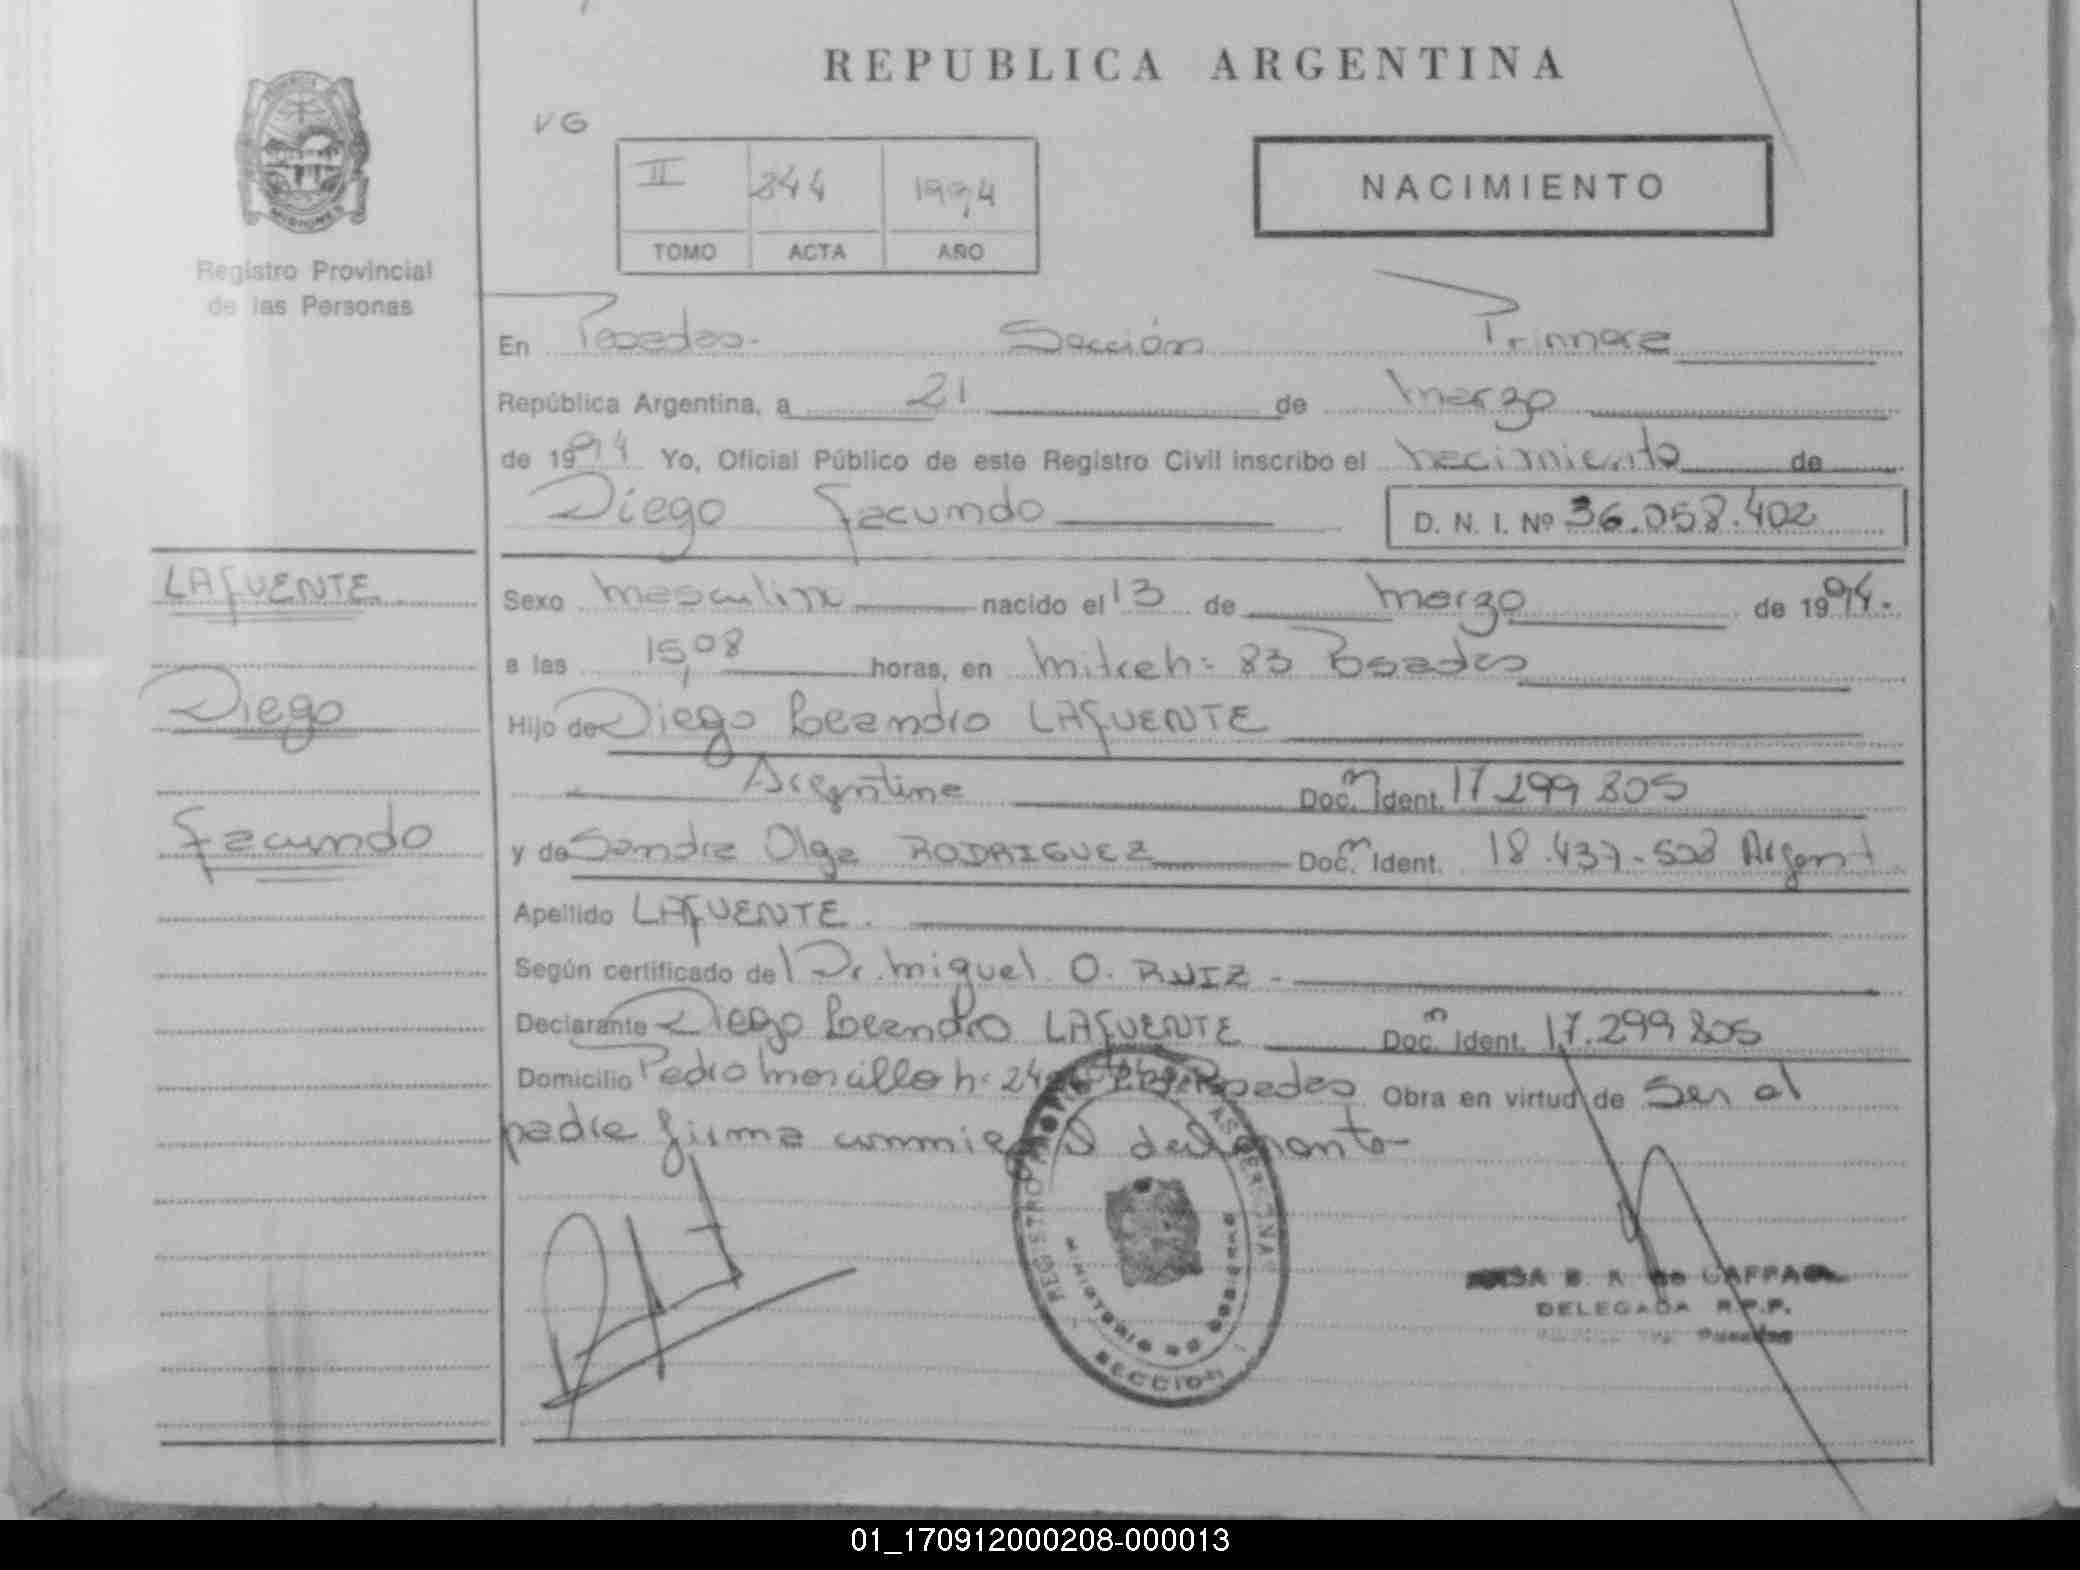 REPUBLICA ARGENTINA
VG
II 844 1994
TOMO ACTA AÑO
NACIMIENTO
MISIONES
Registro Provincial
de las Personas
En Posadas. Sección Primera
República Argentina, a 21 de marzo
de 1994 Yo, Oficial Público de este Registro Civil inscribo el nacimiento de
Diego Facundo
D. N. I. Nº 36.058.402
LAFUENTE
Diego
Facundo
Sexo masculino nacido el 13 de marzo de 1994.
a las 15,08 horas, en Mitre h: 83 Posadas
Hijo de Diego Leandro LAFUENTE
Argentina Doc. Ident. 17 299 805
y de Sandra Olga RODRIGUEZ Doc. Ident. 18.437.508 Argent
Apellido LAFUENTE.
Según certificado del Dr. Miguel O. RUIZ -
Declarante Diego Leandro LAFUENTE Doc. Ident. 17.299 805
Domicilio Pedro Morcillo h: Posadas Obra en virtud de Ser el
padre firma conmigo el declarante
REGISTRO PERSONAS
MINISTERIO DE GOBIERNO
SECCION
DELEGADA R.P.P.
Posadas
01_170912000208-000013